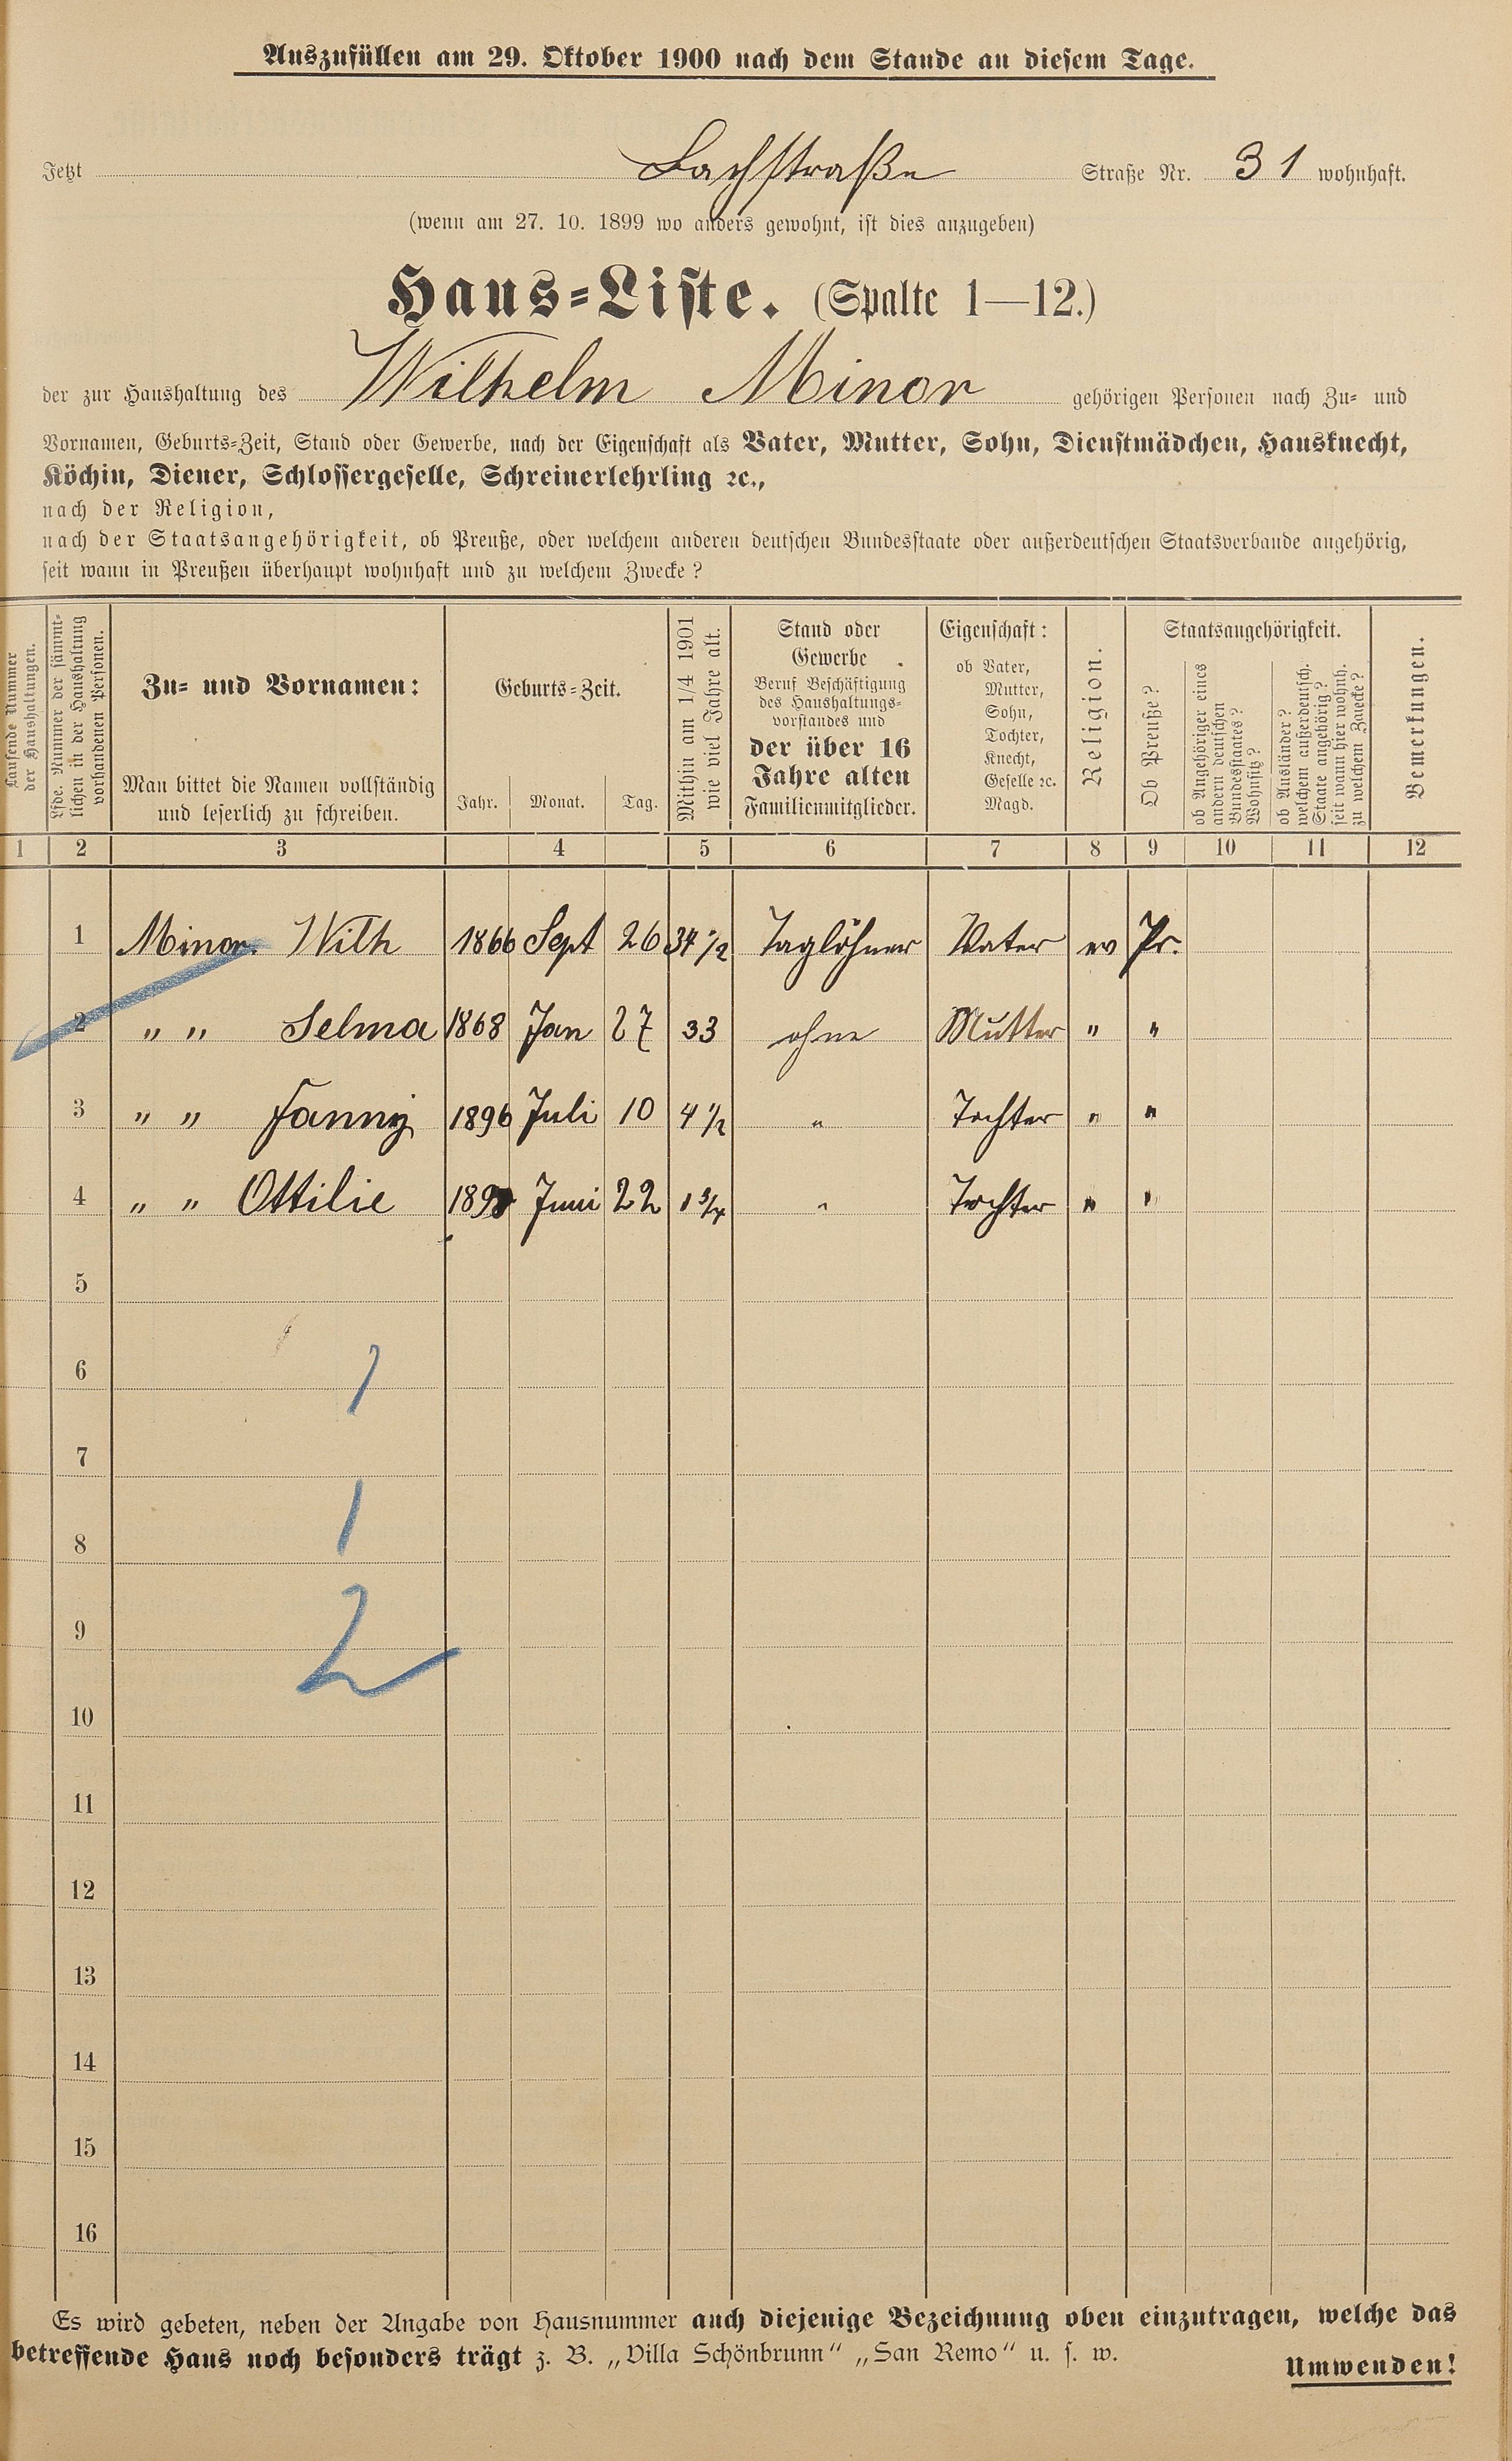 Auszufüllen am 29. Oktober 1900 nach dem Stande an diesem Tage.
Jetzt Bachstraße Straße Nr. 31 wohnhaft.
(wenn am 27. 10. 1899 wo anders gewohnt, ist dies anzugeben)
Haus-Liste. (Spalte 1—12.)
der zur Haushaltung des Wilhelm Minor gehörigen Personen nach Zu- und
Vornamen, Geburts-Zeit, Stand oder Gewerbe, nach der Eigenschaft als Vater, Mutter, Sohn, Dienstmädchen, Hausknecht,
Köchin, Diener, Schlossergeselle, Schreinerlehrling ꝛc.,
nach der Religion,
nach der Staatsangehörigkeit, ob Preuße, oder welchem anderen deutschen Bundesstaate oder außerdeutschen Staatsverbande angehörig,
seit wann in Preußen überhaupt wohnhaft und zu welchem Zwecke?
Laufende Nummer
der Haushaltungen.
Lfde. Nummer der sämmt-
lichen in der Haushaltung
vorhandenen Personen.
Zu- und Vornamen:
Man bittet die Namen vollständig
und leserlich zu schreiben.
Geburts-Zeit.
Jahr. Monat. Tag.
Mithin am 1/4 1901
wie viel Jahre alt.
Stand oder
Gewerbe
Beruf Beschäftigung
des Haushaltungs-
vorstandes und
der über 16
Jahre alten
Familienmitglieder.
Eigenschaft:
ob Vater,
Mutter,
Sohn,
Tochter,
Knecht,
Geselle ꝛc.
Magd.
Religion.
Staatsangehörigkeit.
Ob Preuße?
ob Angehöriger eines
andern deutschen
Bundesstaates?
Wohnsitz?
ob Ausländer?
welchem außerdeutsch.
Staate angehörig?
seit wann hier wohnh.
zu welchem Zwecke?
Bemerkungen.
1 2 3 4 5 6 7 8 9 10 11 12
1 Minor Wilh 1866 Sept 26 34 1/2 Taglöhner Vater ev Pr.
2 " " Selma 1868 Jan 27 33 ohne Mutter " "
3 " " Fanny 1896 Juli 10 4 1/2 " Tochter " "
4 " " Ottilie Juni 22 1 3/4 " Tochter " "
5
6
1
7
1
8
9
2
10
11
12
13
14
15
16
Es wird gebeten, neben der Angabe von Hausnummer auch diejenige Bezeichnung oben einzutragen, welche das
betreffende Haus noch besonders trägt z. B. „Villa Schönbrunn" „San Remo" u. s. w.
Umwenden!